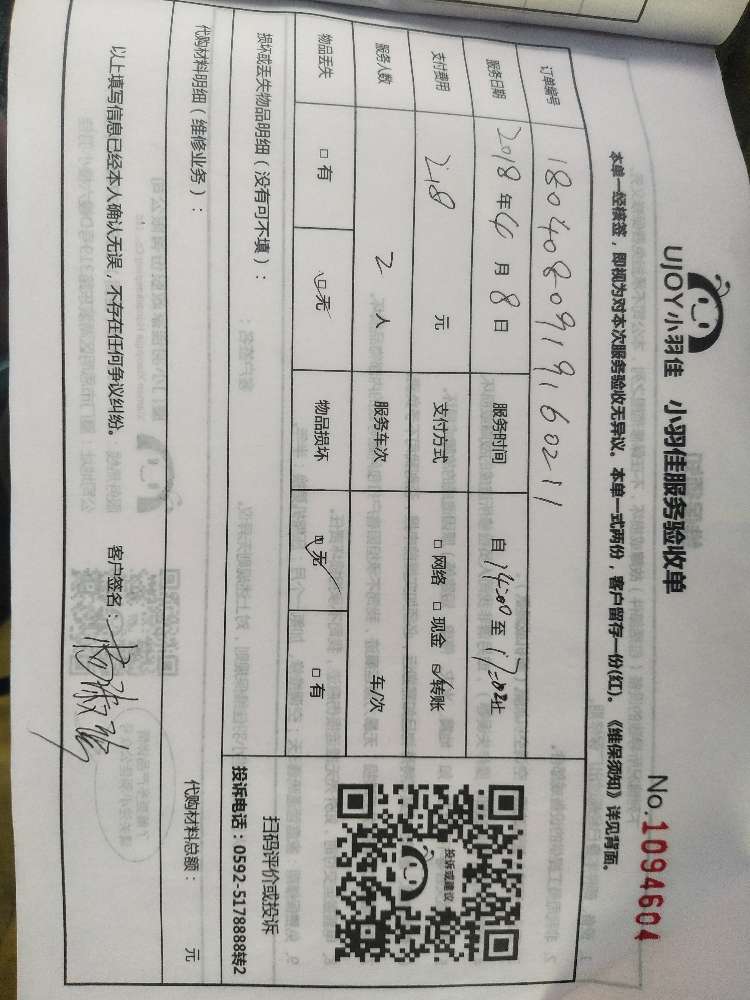 UJOY小羽佳 小羽佳服务验收单
No.1094604
本单一经核签，即视为对本次服务验收无异议。本单一式两份，客户留存一份(红)。《维保须知》详见背面。
订单编号 1804080919160211
服务日期 2018年4月8日 服务时间 自14:00至17:02止
支付费用 218元 支付方式 □网络 □现金 ☑转账
服务人数 2人 服务车次 车/次
物品丢失 □有 ☑无 物品损坏 ☑无 □有
损坏或丢失物品明细（没有可不填）：
代购材料明细（维修业务）：
代购材料总额： 元
投诉或建议
扫码评价或投诉
投诉电话：0592-5178888转2
以上填写信息已经本人确认无误，不存在任何争议纠纷。 客户签名：